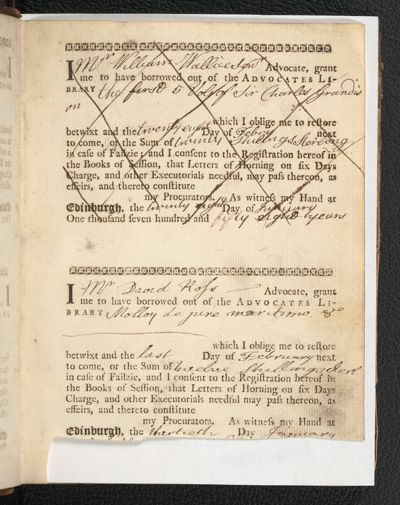 I Mr William Wallice Advocate, grant
me to have borrowed out of the ADVOCATES LI-
BRARY the first 5 Vol of Sir Charles Grandis
on
which I oblige me to restore
betwixt and the twenty eight Day of Febry next
to come, or the Sum of twinty Shillings Stereling
in case of Failzie; and I consent to the Registration hereof in
the Books of Session, that Letters of Horning on six Days
Charge, and other Executorials needful may pass thereon, as
effeirs, and thereto constitute
my Procurators. As witness my Hand at
Edinburgh, the twinty eight Day of January
One thousand seven hundred and fifty eight years
I Mr David Ross Advocate, grant
me to have borrowed out of the ADVOCATES LI-
BRARY Molloy de jure maritimo &c
which I oblige me to restore
betwixt and the last Day of February next
to come, or the Sum of twelve shillings sterl
in case of Failzie, and I consent to the Registration hereof in
the Books of Session, that Letters of Horning on six Days
Charge, and other Executorials needful may pass thereon, as
effeirs, and thereto constitute
my Procurators. As witness my Hand at
Edinburgh, the thirtieth Day January